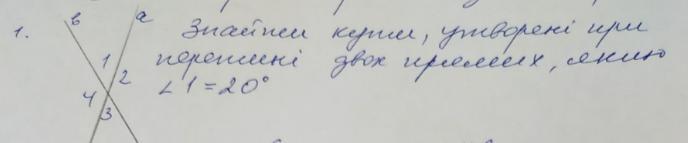 1. в а Знайти кути, утворені при
1 2 перетині двох прямих, якщо
4 3 ∠1=20°